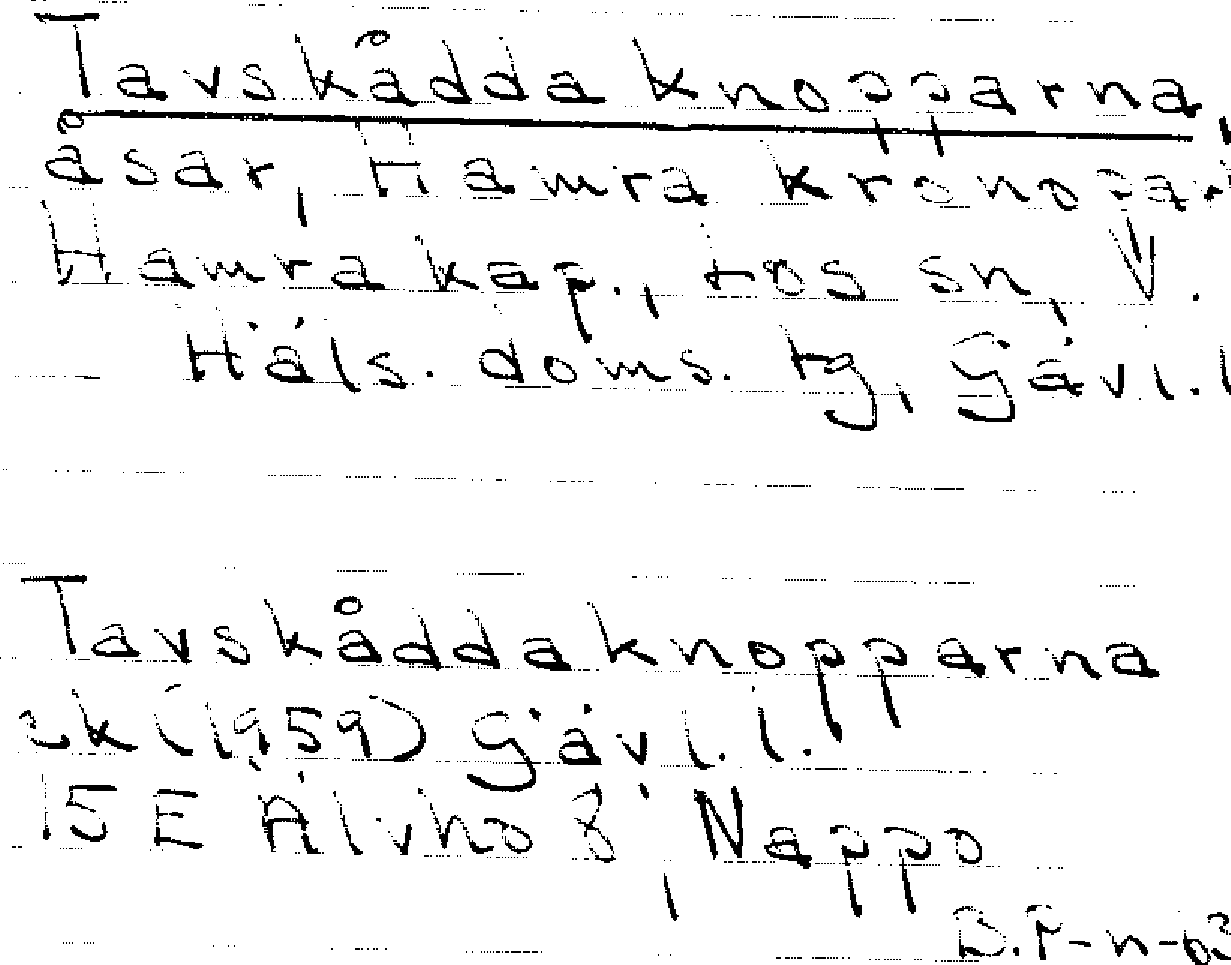 Tavskådda knopparna,
åsar, Hamra kronopar
Hamra kap., Los sn, V.
Häls. doms. tg, Gävl. l
Tavskåddaknopparna
ek (1959) Gävl. l.
15E Älvho 8', Nappo
B. P-n-63